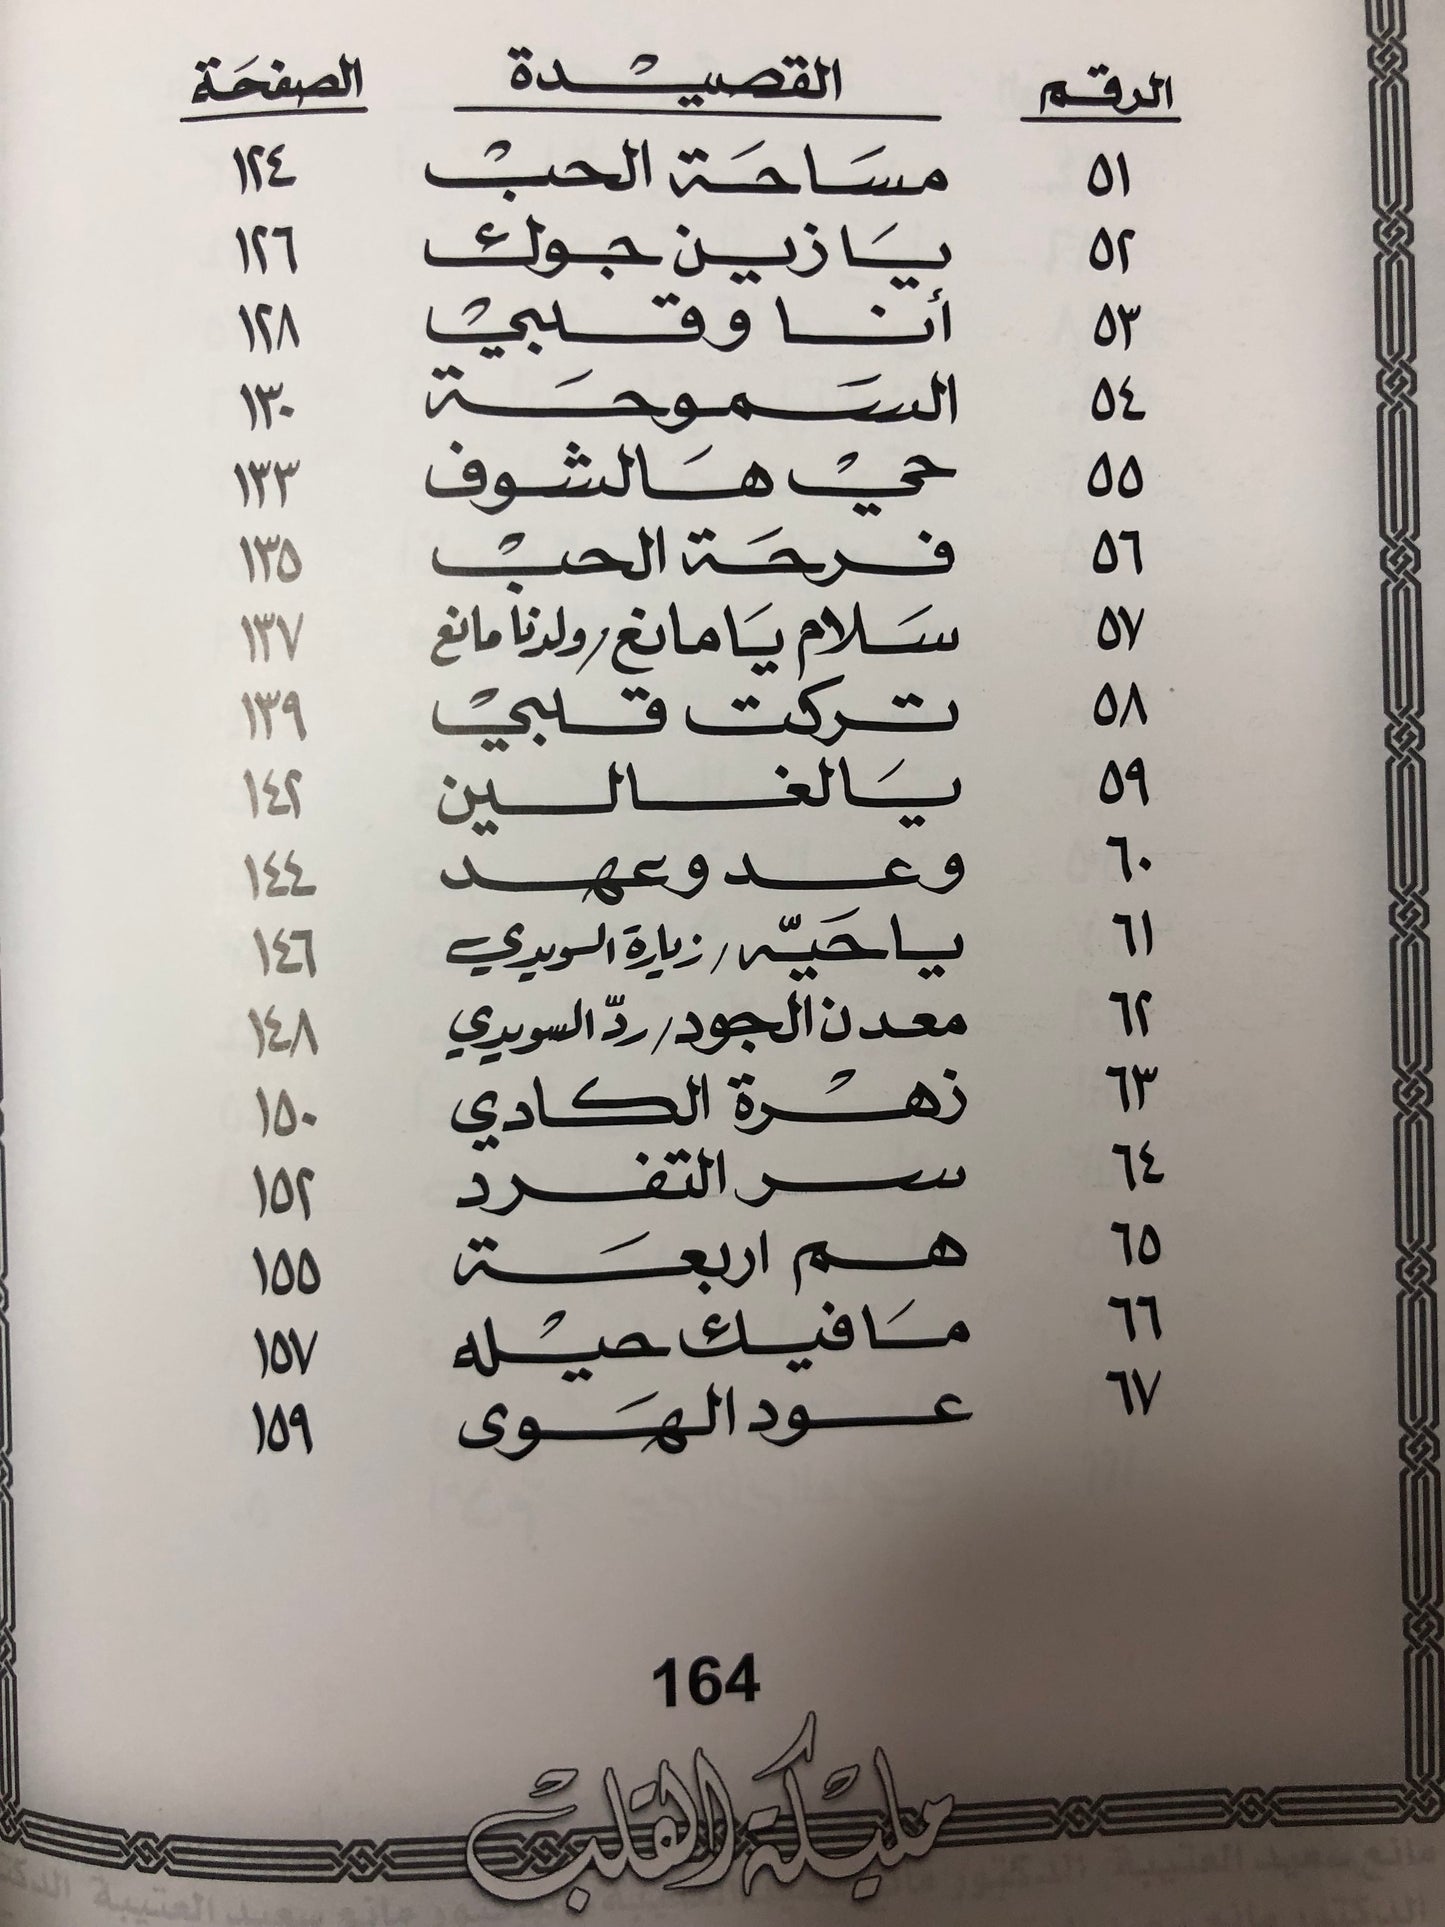 الرقم القصيدة الصفحة
٥١ مساحة الحب ١٢٤
٥٢ يا زين جوك ١٢٦
٥٣ أنا وقلبي ١٢٨
٥٤ السموحة ١٣٠
٥٥ حي هالشوف ١٣٣
٥٦ فرحة الحب ١٣٥
٥٧ سلام يا مانع/ولدنا مانع ١٣٧
٥٨ تركت قلبي ١٣٩
٥٩ يالغالين ١٤٢
٦٠ وعد وعهد ١٤٤
٦١ ياحيّه/زيارة السويدي ١٤٦
٦٢ معدن الجود/ردّ السويدي ١٤٨
٦٣ زهرة الكادي ١٥٠
٦٤ سر التفرد ١٥٢
٦٥ هم اربعة ١٥٥
٦٦ ما فيك حيله ١٥٧
٦٧ عود الهوى ١٥٩
164
مليكة القلب